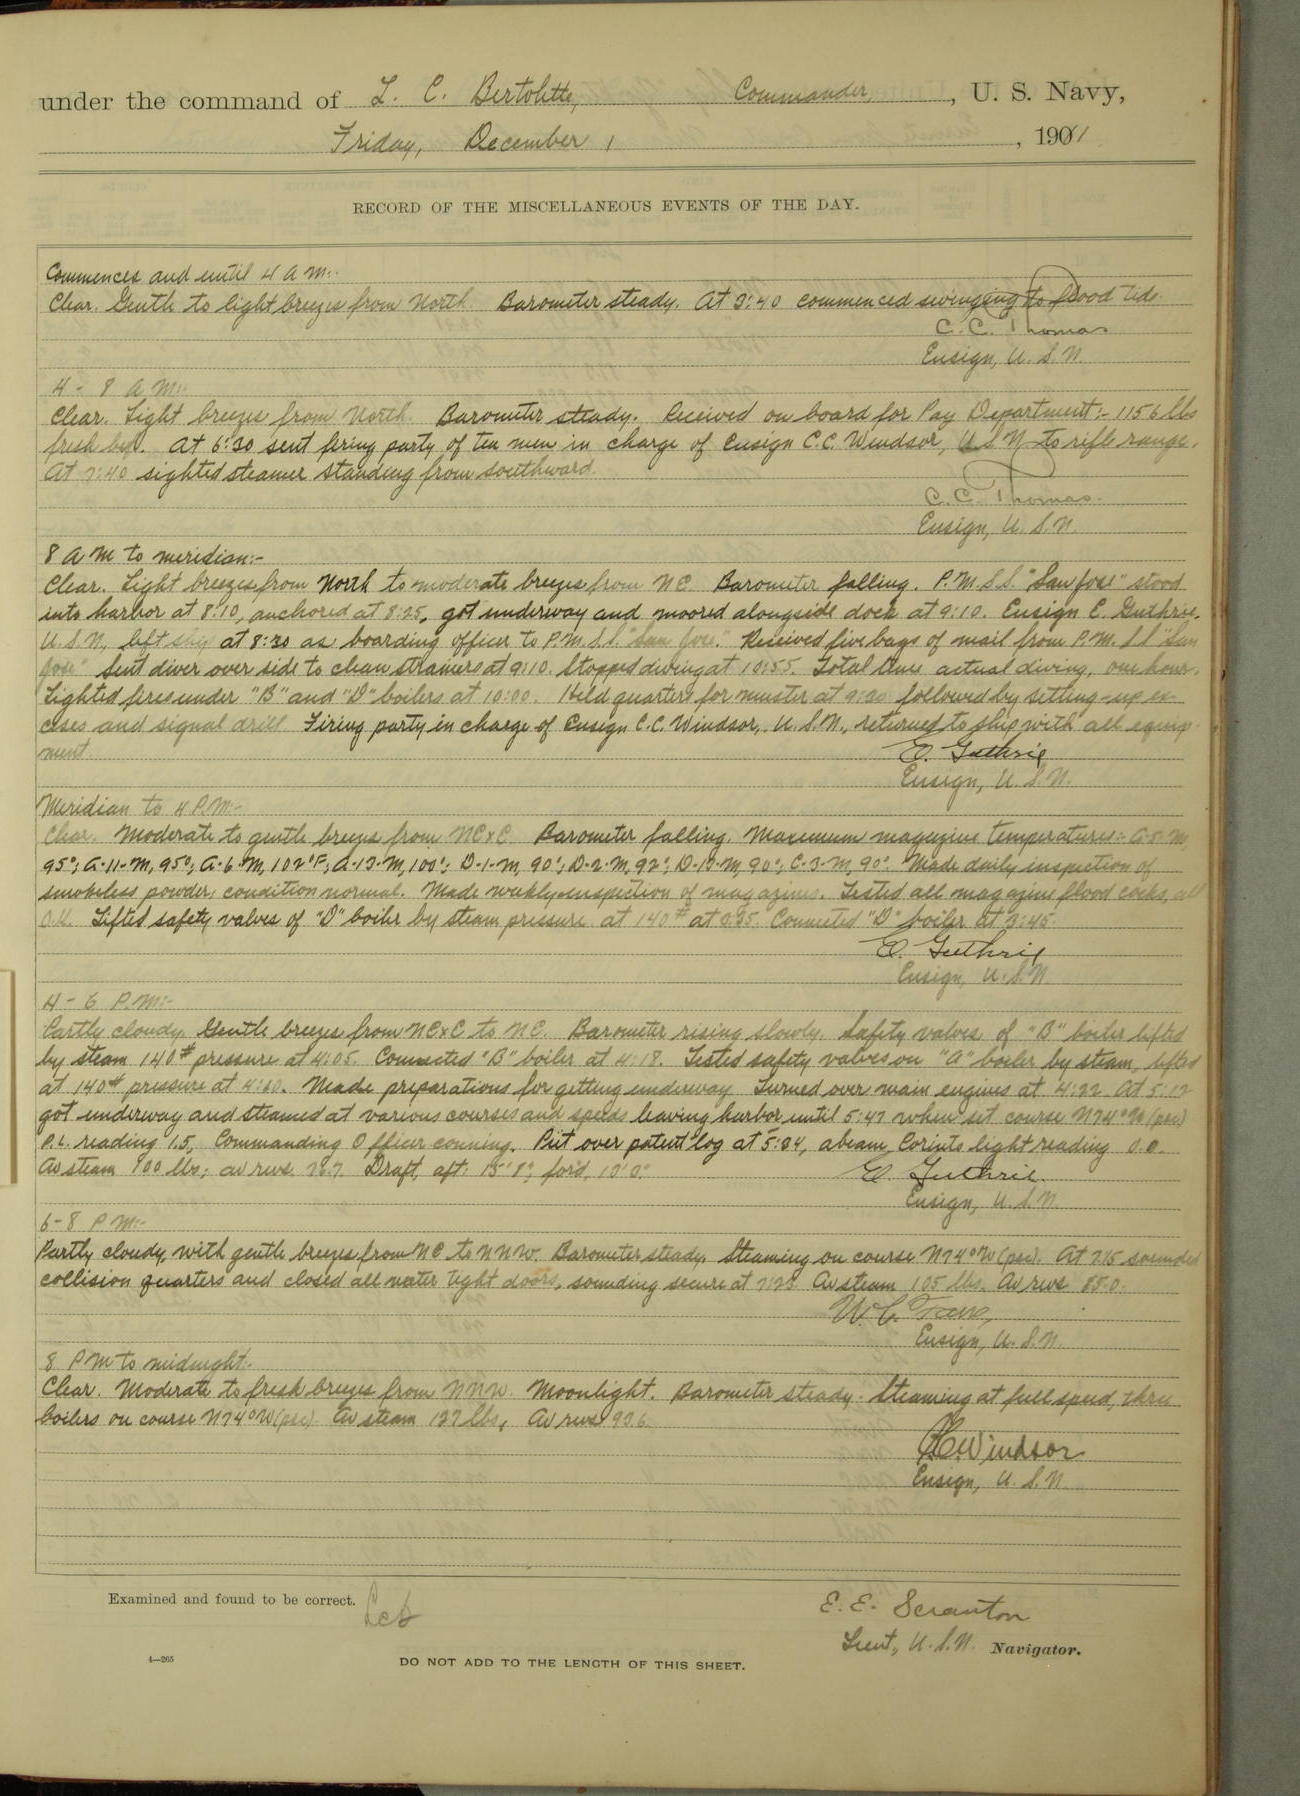 under the command of L. C. Bertolette, Commander, U. S. Navy,
Friday, December 1, 1911
RECORD OF THE MISCELLANEOUS EVENTS OF THE DAY.
Commences and until 4 A M:-
Clear. Gentle to light breezes from North. Barometer steady. At 3:40 commenced swinging to flood tide.
C. C. Thomas
Ensign, U. S. N.
4 - 8 A M:-
Clear. Light breezes from North. Barometer steady. Received on board for Pay Department:- 1156 lbs
fresh. At 6:30 sent firing party of ten men in charge of Ensign C. C. Windsor, U S N to rifle range.
At 7:40 sighted steamer standing from southward.
C. C. Thomas.
Ensign, U. S. N.
8 A M to meridian:-
Clear. Light breezes from North to moderate breezes from NE. Barometer falling. P. M. S. S. "San Jose" stood
into harbor at 8:10, anchored at 8:25, got underway and moored alongside dock at 9:10. Ensign E. Guthrie,
U. S. N., left ship at 8:30 as boarding officer to P. M. S. S. "San Jose." Received five bags of mail from P. M. S. S "San
Jose" Sent diver over side to clean strainers at 9:10. Stopped diving at 10:55. Total time actual diving, one hour.
Lighted fires under "B" and "D" boilers at 10:00. Held quarters for muster at 9:30 followed by setting-up ex-
cises and signal drill. Firing party in charge of Ensign C. C. Windsor, U. S. N., returned to ship with all equip-
ment.
E. Guthrie
Ensign, U. S. N.
Meridian to 4 P.M:-
Clear. Moderate to gentle breezes from NExE. Barometer falling. Maximum magazine temperatures:- A-5-M,
95°; A-11-M, 95°; A-6-M, 102°F; A-13-M, 100°; D-1-M, 90°; D-2-M, 92°; D-13-M, 90°; C-3-M, 90°. Made daily inspection of
smokeless powder; condition normal. Made weekly inspection of magazines. Tested all magazine flood cocks, all
O.K. Lifted safety valves of "D" boiler by steam pressure at 140# at 3:35. Connected "D" boiler at 3:45.
E. Guthrie
Ensign, U. S. N.
4 - 6 P.M:-
Partly cloudy. Gentle breezes from NExE to NE. Barometer rising slowly. Safety valves of "B" boiler lifted
by steam 140# pressure at 4:05. Connected "B" boiler at 4:18. Tested safety valves on "A" boiler by steam, lifted
at 140# pressure at. Made preparations for getting underway. Turned over main engines at 4:22. At 5:12
got underway and steamed at various courses and speeds leaving harbor until 5:47 when set course N 74° W (psc)
P.L. reading 1.5, Commanding Officer conning. Put over patent log at 5:34, abeam Corinto light reading 0.0.
Av steam 100 lbs; av revs. Draft, aft. 15'; for'd,
E. Guthrie.
Ensign, U. S. N.
6-8 P M:-
Partly cloudy, with gentle breezes from NE to NNW. Barometer steady. Steaming on course N 74° W (psc). At 7:15 sounded
collision quarters and closed all water tight doors, sounding secure at 7:23. Av steam 105 lbs. Av revs 85.0.
W. C.
Ensign, U. S. N.
8 P M to midnight:-
Clear. Moderate to fresh breezes from NNW. Moonlight. Barometer steady. Steaming at full speed, three
boilers on course N 74° W (psc). Av steam 127 lbs, Av revs 92.6.
C. C. Windsor
Ensign, U. S. N.
Examined and found to be correct. LCB
E. E. Scranton
Lieut., U. S. N. Navigator.
4—265
DO NOT ADD TO THE LENGTH OF THIS SHEET.